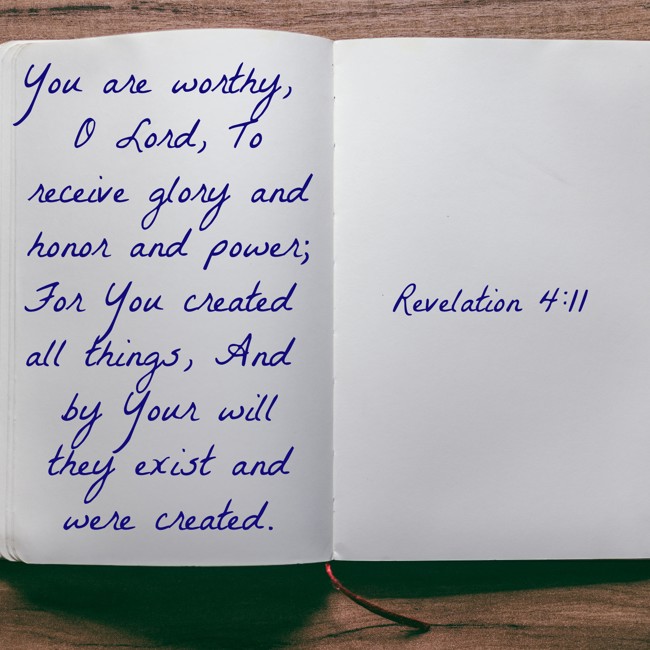 You are worthy,
O Lord, To
receive glory and
honor and power;
For You created
all things, And
by Your will
they exist and
were created.
Revelation 4:11